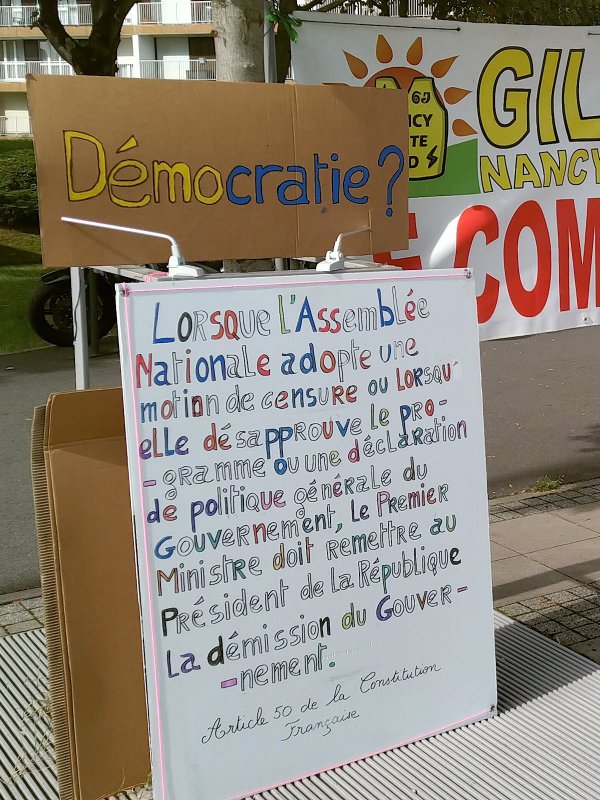 Démocratie ?
GIL
NANCY
COM
Lorsque l'Assemblée
Nationale adopte une
motion de censure ou lorsqu'
elle désapprouve le pro-
-gramme ou une déclaration
de politique générale du
Gouvernement, le Premier
Ministre doit remettre au
Président de la République
la démission du Gouver-
-nement.
Article 50 de la Constitution
Française